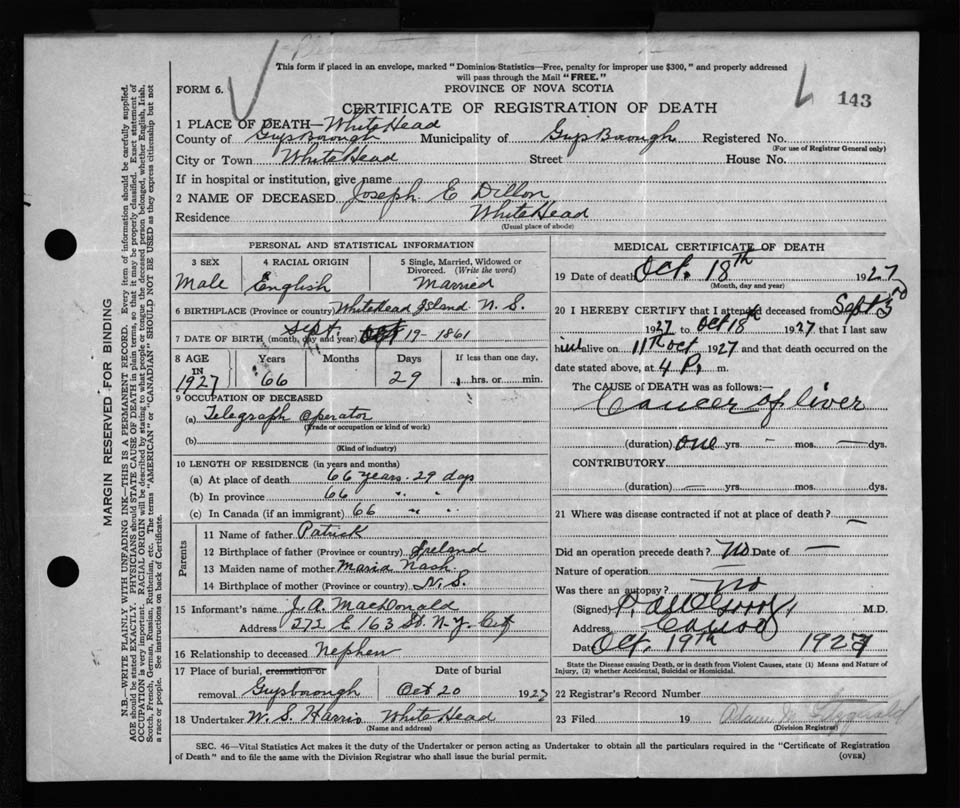 This form if placed in an envelope, marked "Dominion Statistics—Free, penalty for improper use $300," and properly addressed
will pass through the Mail "FREE."
FORM 6.
PROVINCE OF NOVA SCOTIA
143
CERTIFICATE OF REGISTRATION OF DEATH
1 PLACE OF DEATH—White Head
County of Gysborough Municipality of Gysborough Registered No.
(For use of Registrar General only)
City or Town White Head Street House No.
If in hospital or institution, give name
2 NAME OF DECEASED Joseph E Dillon
Residence White Head
(Usual place of abode)
PERSONAL AND STATISTICAL INFORMATION
3 SEX 4 RACIAL ORIGIN 5 Single, Married, Widowed or Divorced. (Write the word)
Male English Married
6 BIRTHPLACE (Province or country) White Head Island N. S.
7 DATE OF BIRTH (month, day and year) Sept. 19 - 1861
8 AGE IN Years Months Days If less than one day,
1927 66 29 hrs. or min.
9 OCCUPATION OF DECEASED
(a) Telegraph Operator
(Trade or occupation or kind of work)
(b)
(Kind of industry)
10 LENGTH OF RESIDENCE (in years and months)
(a) At place of death 66 years. 29 days
(b) In province 66 " "
(c) In Canada (if an immigrant) 66 " "
Parents
11 Name of father Patrick
12 Birthplace of father (Province or country) Ireland
13 Maiden name of mother Maria Nash
14 Birthplace of mother (Province or country) N. S.
15 Informant's name J. A. MacDonald
Address 272 E 163 St. N. Y. City
16 Relationship to deceased Nephew
17 Place of burial, cremation or Date of burial
removal Gysborough Oct 20 1927
18 Undertaker W. S. Harris White Head
(Name and address)
MEDICAL CERTIFICATE OF DEATH
19 Date of death Oct. 18th 1927
(Month, day and year)
20 I HEREBY CERTIFY that I attended deceased from Sept 3rd
1927 to Oct 18th 1927 that I last saw
him alive on 11th Oct 1927 and that death occurred on the
date stated above, at 4 P. m.
The CAUSE OF DEATH was as follows:—
Cancer of liver
(duration) one yrs. - mos. — dys.
CONTRIBUTORY
(duration) — yrs. mos. dys.
21 Where was disease contracted if not at place of death?
—
Did an operation precede death? No Date of —
Nature of operation —
Was there an autopsy? No
(Signed) M.D.
Address Canso
Date Oct. 19th 1927
State the Disease causing Death, or in death from Violent Causes, state (1) Means and Nature of
Injury, (2) whether Accidental, Suicidal or Homicidal.
22 Registrar's Record Number
23 Filed 19 Adam N Fitzgerald
(Division Registrar)
SEC. 46—Vital Statistics Act makes it the duty of the Undertaker or person acting as Undertaker to obtain all the particulars required in the "Certificate of Registration
of Death" and to file the same with the Division Registrar who shall issue the burial permit.
(OVER)
MARGIN RESERVED FOR BINDING
N.B.—WRITE PLAINLY WITH UNFADING INK—THIS IS A PERMANENT RECORD. Every item of information should be carefully supplied.
AGE should be stated EXACTLY. PHYSICIANS should STATE CAUSE OF DEATH in plain terms, so that it may be properly classified. Exact statement of
OCCUPATION is very important. RACIAL ORIGIN will be described by stating to what people or tongue the deceased person belonged, whether English, Irish,
Scotch, French, German, Russian, Ruthenian, etc. The terms "AMERICAN" or "CANADIAN" SHOULD NOT BE USED as they express citizenship but not
a race or people. See instructions on back of Certificate.